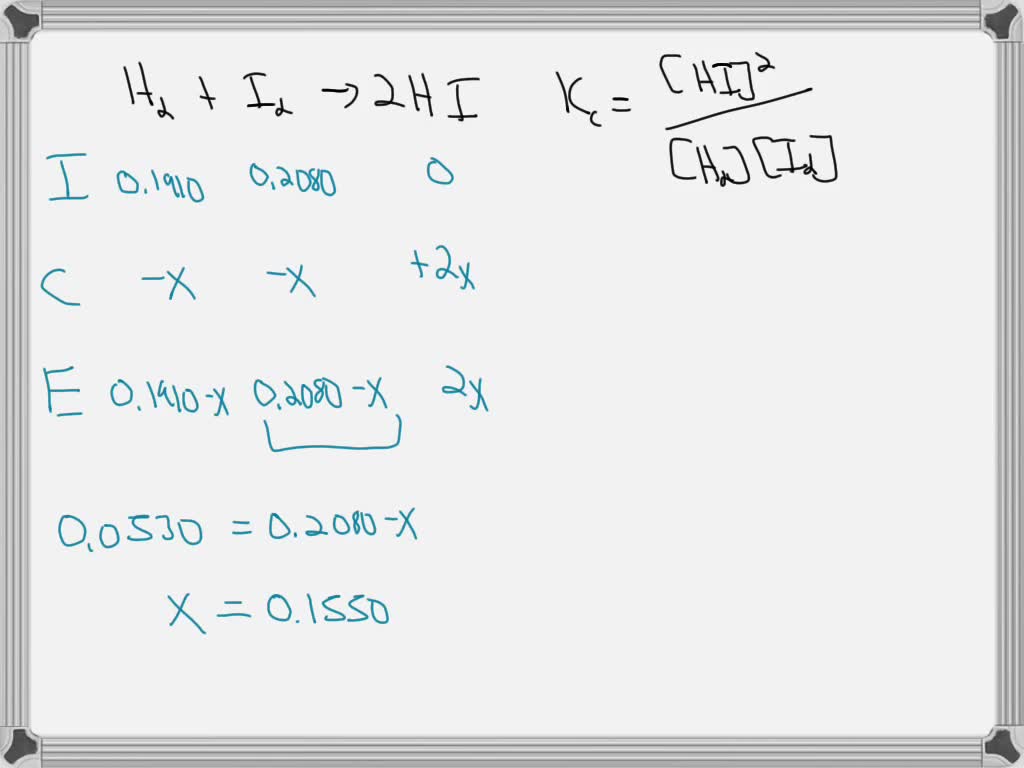 H₂ + I₂ → 2HI K_c = [HI]² / [H₂][I₂]
I 0.1910 0.2080 0
C -x -x +2x
E 0.1910-x 0.2080-x 2x
0.0530 = 0.2080-x
x = 0.1550